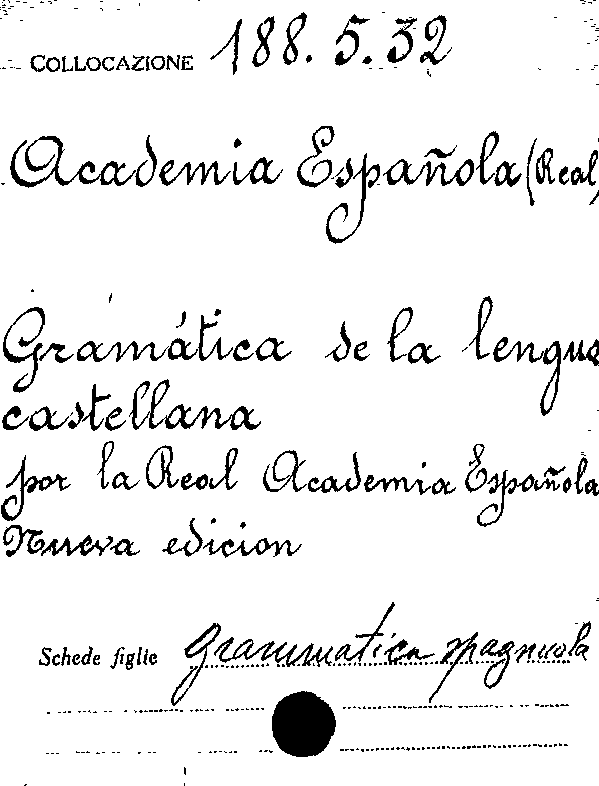 COLLOCAZIONE 188. 5. 32
Academia Española (Real)
Gramática de la lengua
castellana
por la Real Academia Española
Nueva edicion
Schede figlie Grammatica spagnuola